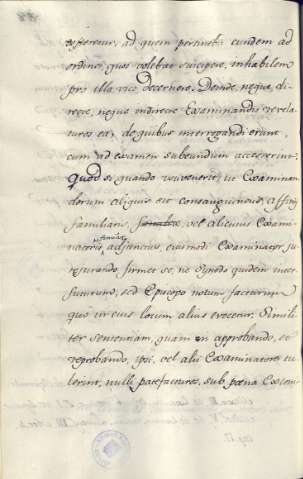 referetur, ad quem pertinebit eundem ad
ordines, quos volebat suscipere, inhabilem
pro illa vice decernere. Deinde, neque di-
recte, neque indirecte Examinandis revela-
turos ea, de quibus interrogandi erunt,
cum ad examen subeundum accesserint.
Quod si quando evenerit, ut Examinan-
dorum aliquis sit consanguineus, affinis,
familiaris, vel alicuius Exami-
natoris famulus
adjenticius, eiusmodi Examinator, ju-
rejurando firmet se, ne Synodo quidem inter
futurum, sed Episcopo notum facturum
quo in eius locum alius vocetur. Simili-
ter sententiam, quam in approbando, et
reprobando, ipsi, vel alii Examinatores tu-
lerint, nulli patefacturos, sub pena Excom-